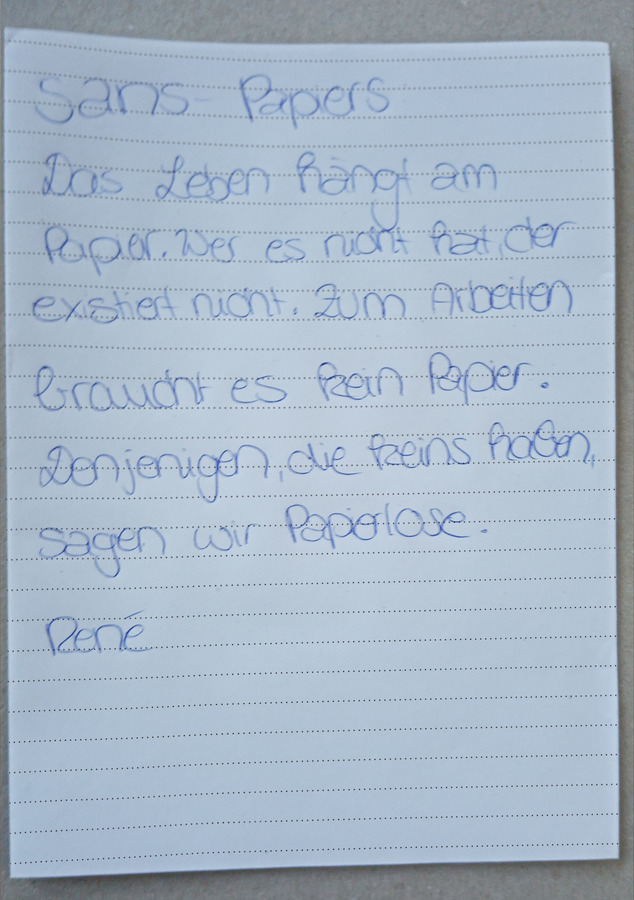 Sans-Papiers
Das Leben hängt am
Papier. Wer es nicht hat, der
existiert nicht. Zum Arbeiten
braucht es kein Papier.
Denjenigen, die keins haben,
sagen wir Papierlose.
René